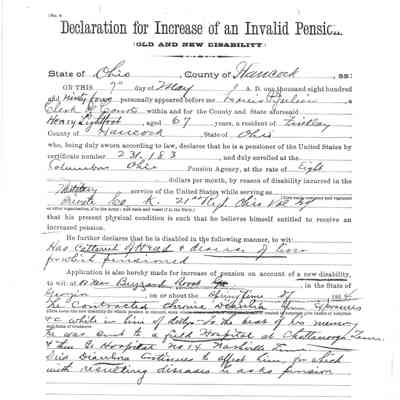 Declaration for Increase of an Invalid Pension.
(OLD AND NEW DISABILITY)
State of Ohio, County of Hancock, ss:
ON THIS 7" day of May, A. D. one thousand eight hundred
and Ninty four personally appeared before me a
Clerk of Courts within and for the County and State aforesaid
Henry Lightfoot, aged 67 years, a resident of Findlay
County of Hancock State of Ohio
who, being duly sworn according to law, declares that he is a pensioner of the United States by
certificate number 231,183, and duly enrolled at the
Columbus Ohio Pension Agency, at the rate of Eight
dollars per month, by reason of disability incurred in the
Military service of the United States while serving as
Private Co K. 21st Regt Ohio Vol
that his present physical condition is such that he believes himself entitled to receive an
increased pension.
He further declares that he is disabled in the following manner, to wit:
Has Catarrh of Head & disease of
for which pensioned
Application is also hereby made for increase of pension on account of a new disability,
to wit: at Near Buzzard Roost, in the State of
Georgia on or about the Spring time of
He Contracted Chronic Diarrhea from Exposures
&c while in line of duty - to the best of his memory
he was sent to a field Hospital at Chattanooga Tenn.
& then to Hospital No 14 Nashville Tenn
This Diarrhea Continues to affect him, for which
with resulting diseases he asks pension